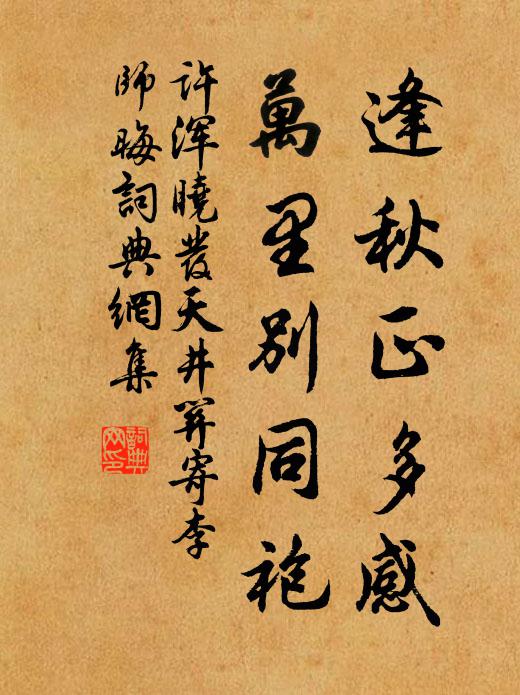 逢秋正多感
萬里別同袍
許渾曉發天井關寄李
師晦詞典網集
詞典
网印